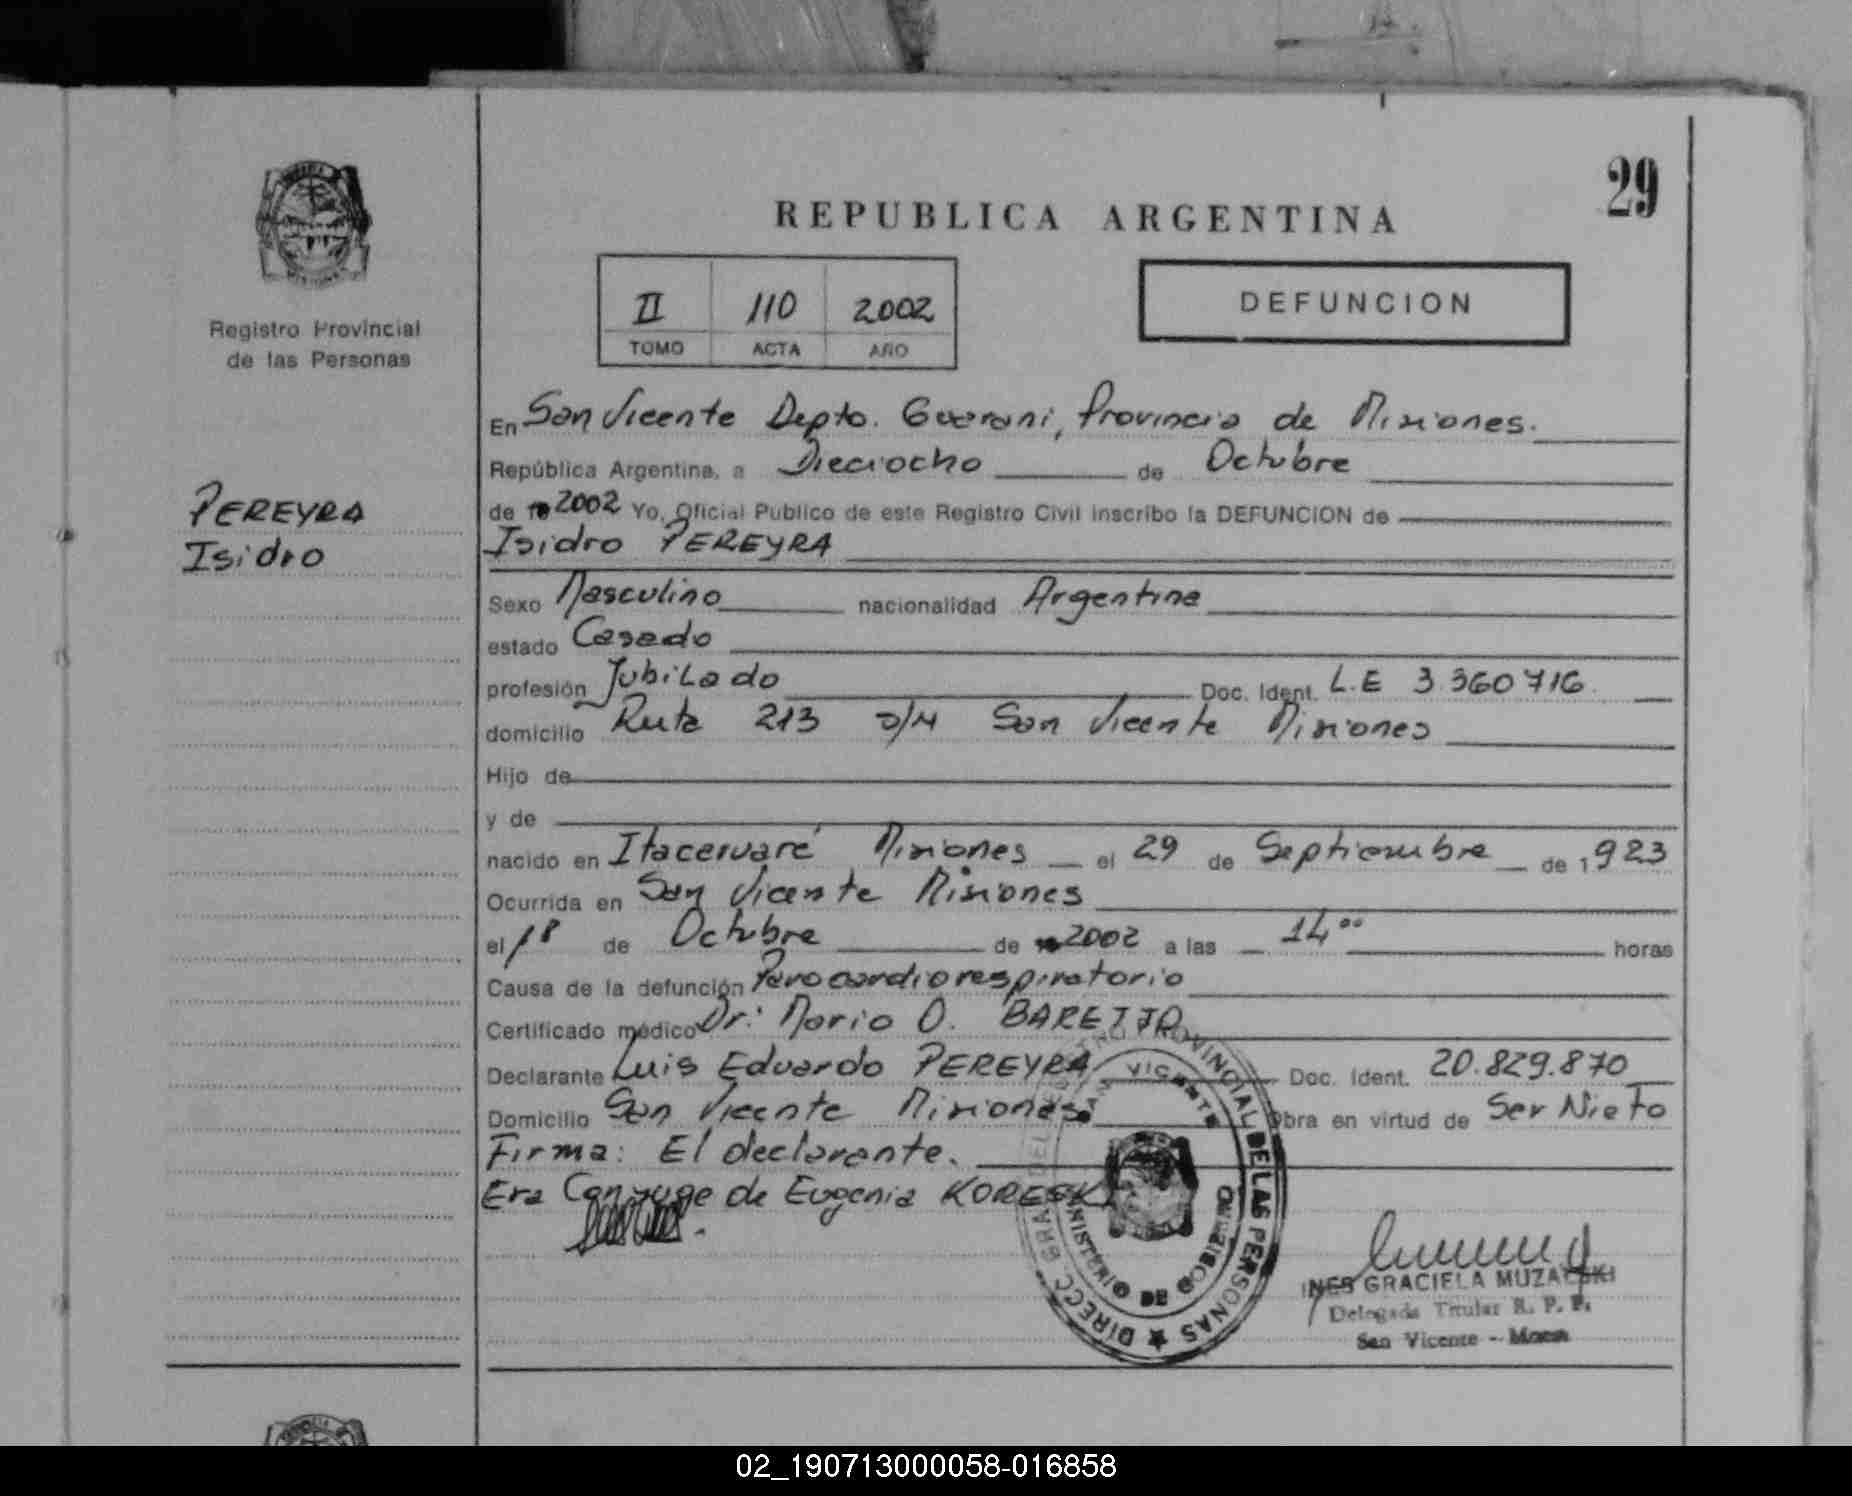 29
REPUBLICA ARGENTINA
II 110 2002
TOMO ACTA AÑO
DEFUNCION
Registro Provincial
de las Personas
PEREYRA
Isidro
En San Vicente Depto. Guarani, Provincia de Misiones.
República Argentina, a Dieciocho de Octubre
de 2002 Yo, Oficial Publico de este Registro Civil inscribo la DEFUNCION de
Isidro PEREYRA
Sexo Masculino nacionalidad Argentina
estado Casado
profesión Jubilado Doc. Ident. L.E 3.360716.
domicilio Ruta 213 s/n San Vicente Misiones
Hijo de
y de
nacido en Itacaruaré Misiones el 29 de Septiembre de 1923
Ocurrida en San Vicente Misiones
el 18 de Octubre de 2002 a las 14°° horas
Causa de la defunción Parocardiorespiratorio
Certificado médico Dr: Mario O. BAREIRO
Declarante Luis Eduardo PEREYRA Doc. Ident. 20.829.870
Domicilio San Vicente Misiones Obra en virtud de Ser Nieto
Firma: El declarante.
Era Conyuge de Eugenia KORESKI
DIRECC GRAL DEL REGISTRO PROVINCIAL DE LAS PERSONAS
SAN VICENTE
MINISTRO DE GOBIERNO
INES GRACIELA MUZALSKI
Delegada Titular R. P. P.
San Vicente - Mnes
02_190713000058-016858